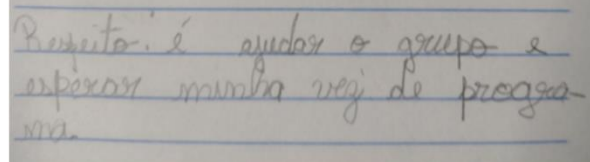 Respeito. é ajudar o grupo e
esperar minha vez de progra-
ma.